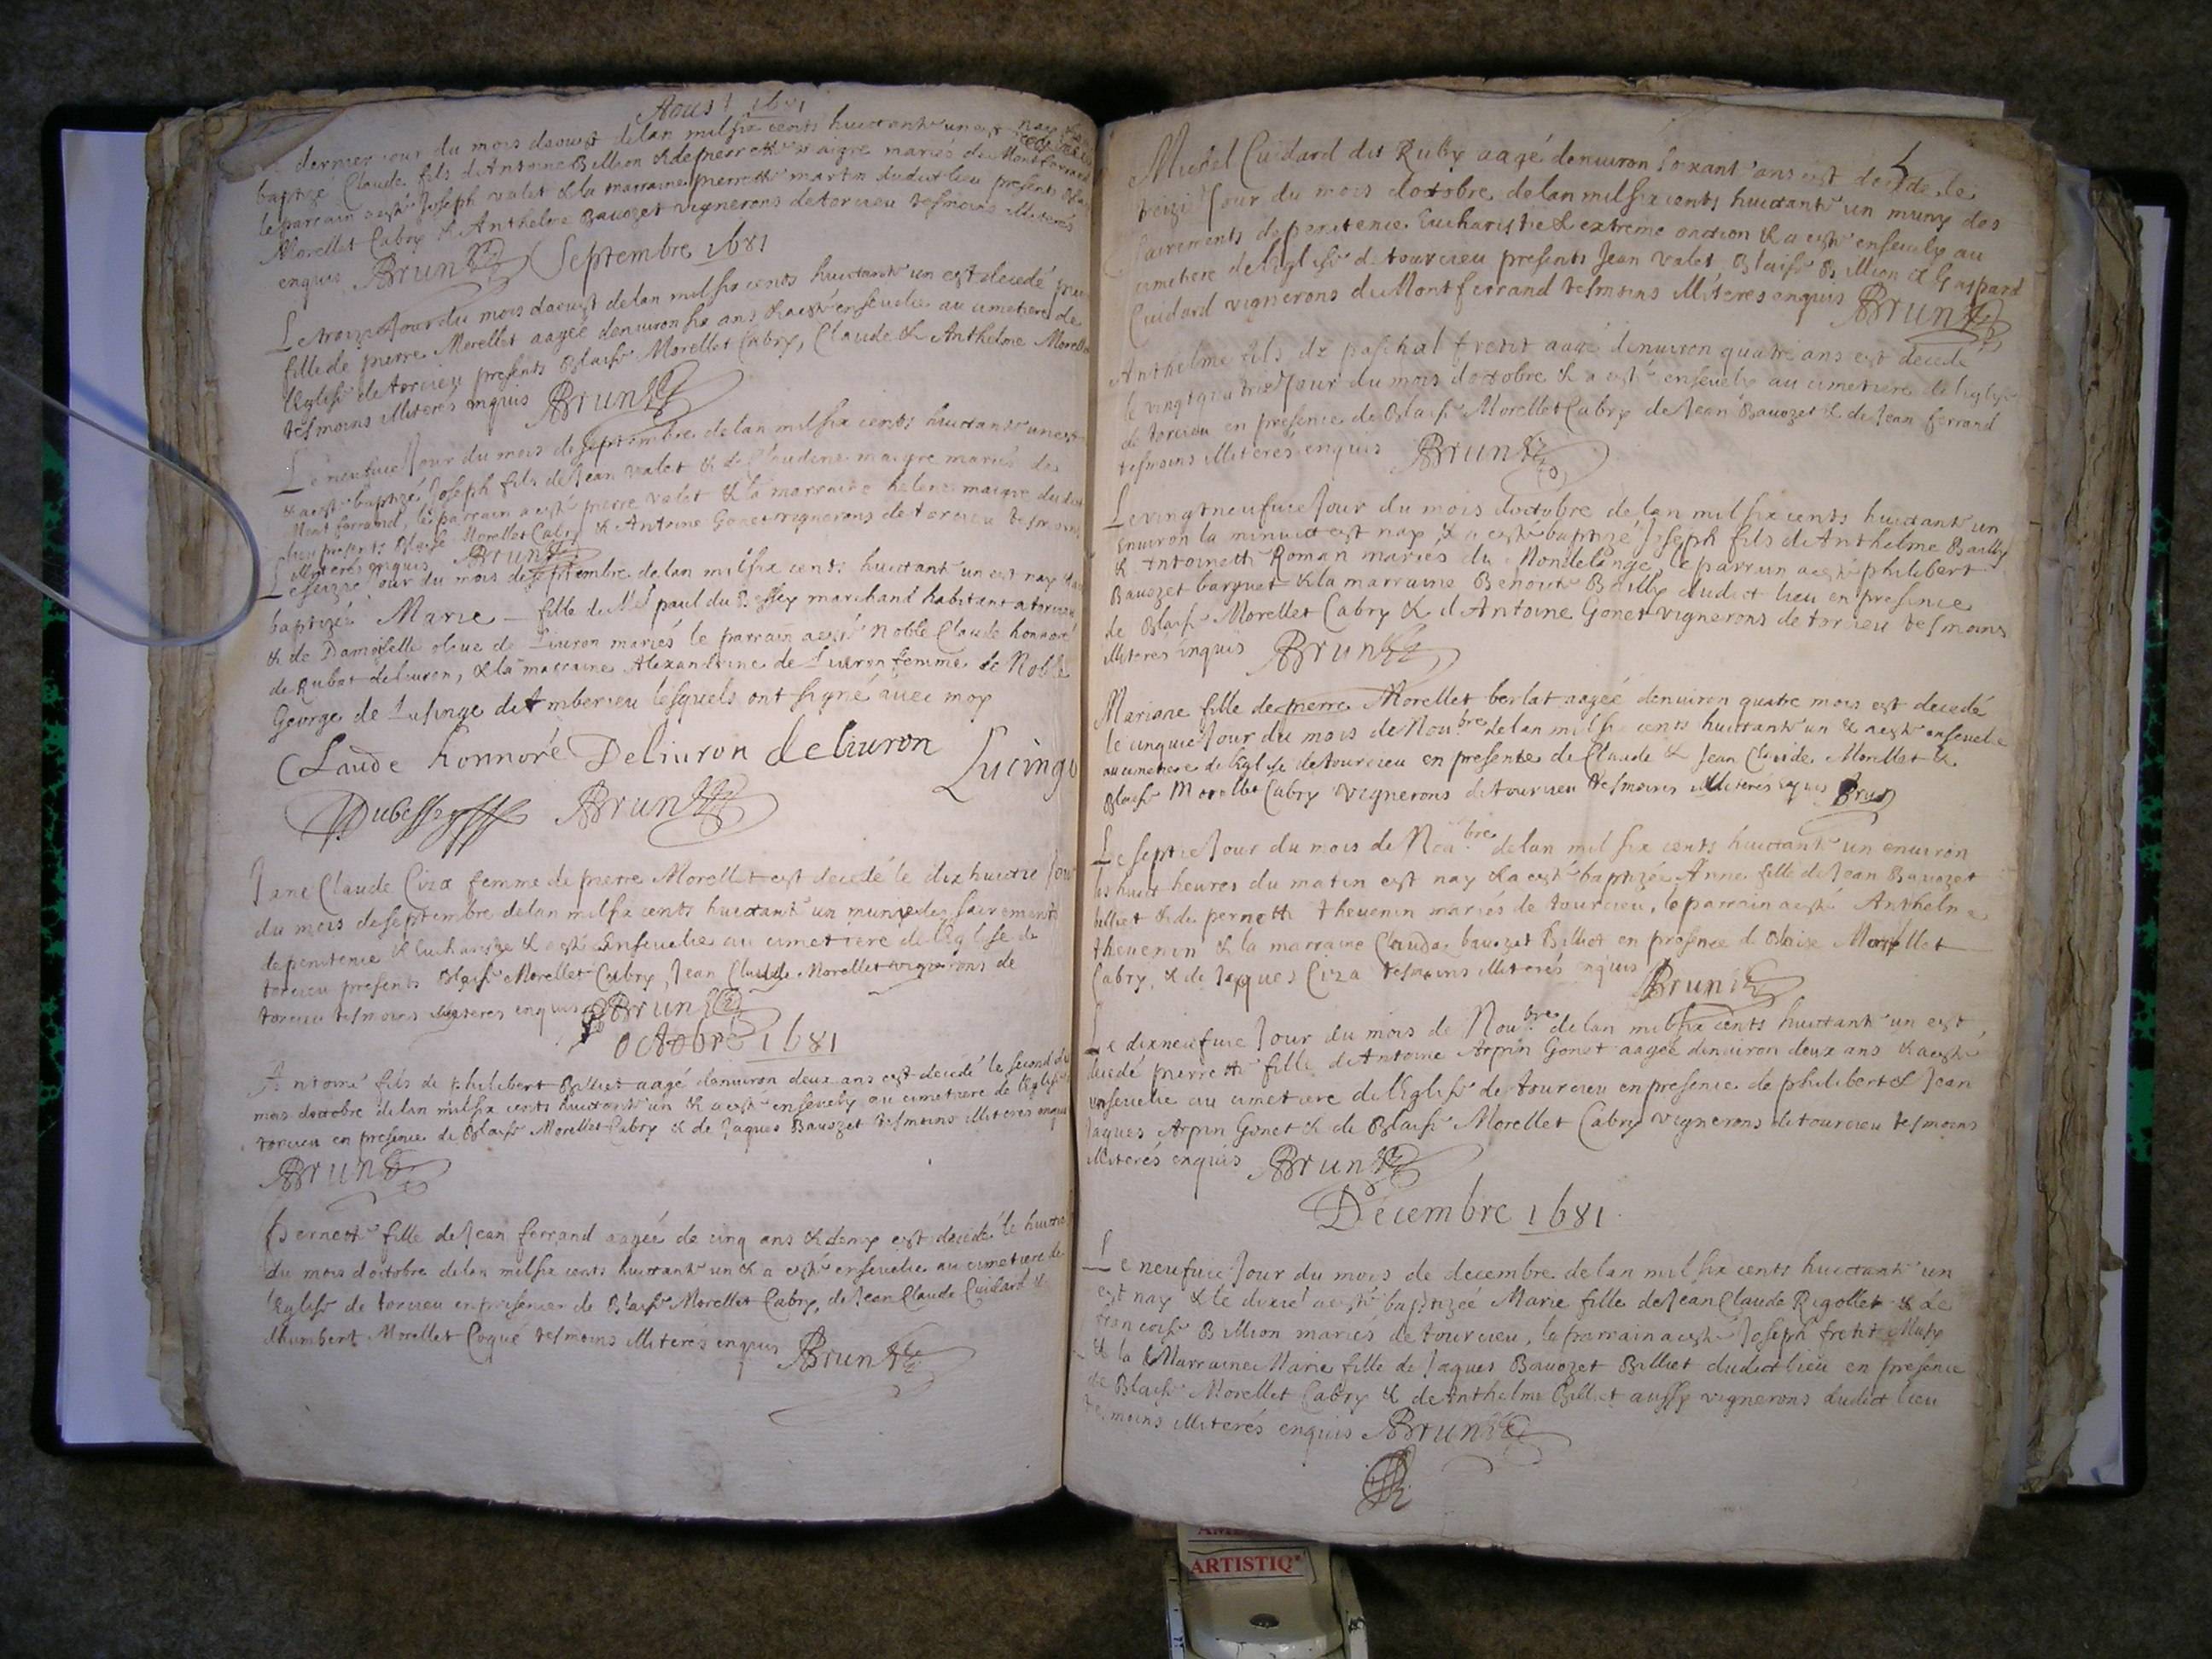 Aoust 1681
dernier jour du mois daoust delan mil six cents huictante un est nay & a esté
baptizé Claude fils dAntoine Billion & de pierrette maigre mariés du Montferrand
le parrain a esté Joseph valet & la marraine pierrette martin dudict lieu presents Blaise
Morellet Cabry & Anthelme Bauozet vignerons de torcieu tesmoins illiterés
enquis Brun
Septembre 1681
Le troizie Jour du mois daoust delan mil six cents huictante un est decedé
fille de pierre Morellet aagée denuiron six ans & a esté enseuelie au cimetiere de
leglise de torcieu presents Blaise Morellet Cabry, Claude & Anthelme Morellet
tesmoins illiterés enquis Brun
Le neufuie Jour du mois de septembre delan mil six cents huictante un est
& a esté baptizé Joseph fils de Jean valet & de Claudine maigre mariés du
Mont ferrand, le parrain a esté pierre valet & la marraine helene maigre dudict
lieu presents Blaise Morellet Cabry & Antoine Gonet vignerons de torcieu tesmoins
illiterés enquis Brun
Le seizie Jour du mois de septembre delan mil six cents huictante un est nay & a esté
baptizée Marie fille de paul du Bessey marchand habitant a torcieu
& de Damoiselle oliue de Liuron mariés le parrain a esté Noble Claude honnoré
de Rubat deliuron, & la marraine Alexandrine de Liuron femme de Noble
George de Lusinge de Amberieu lesquels ont signé auec moy
Claude honnoré Deliuron deliuron Lucinge
Dubessey Brun
Jane Claude Ciza femme de pierre Morellet est decedé le dix huictie Jour
du mois de septembre delan mil six cents huictante un munie des sacrements
de penitence & Eucharistie & a esté Enseuelie au cimetiere de l'Eglise de
torcieu presents Blaise Morellet Cabry, Jean Claude Morellet vignerons de
torcieu tesmoins illiteres enquis Brun
Octobre 1681
Antoine fils de philibert Billiet aagé denuiron deux ans est decedé le second du
mois doctobre delan mil six cents huictante un & a esté enseuely au cimetiere de l'Eglise
torcieu en presence de Blaise Morellet Cabry & de Jaques Bauozet tesmoins illiteres enquis
Brun
Pernette fille de Jean ferrand aagée de cinq ans & demy est decedé le huictie
du mois doctobre delan mil six cents huictante un & a esté enseuelie au cimetiere de
l'Eglise de torcieu en presence de Blaise Morellet Cabry, de Jean Claude Cuidard &
dhumbert Morellet Coqué tesmoins illiterés enquis Brun
Michel Cuidard dit Ruby aagé denuiron soixante ans est decedé le
treizie Jour du mois doctobre delan mil six cents huictante un muny des
sacrements de penitence Eucharistie & extreme onction & a esté enseuely au
cimetiere de leglise de tourcieu presents Jean valet Blaise Billion & Gaspard
Cuidard vignerons du Montferrand tesmoins illiteres enquis Brun
Anthelme fils de paschal fretit aagé denuiron quatre ans est decedé
le vingtquatrie Jour du mois doctobre & a esté enseuely au cimetiere de leglise
de torcieu en presence de Blaise Morellet Cabry de Jean Bauozet & de Jean ferrand
tesmoins illiterés enquis Brun
Le vingtneufuie Jour du mois doctobre delan mil six cents huictante un
enuiron la minuict est nay & a esté baptizé Joseph fils de Anthelme Bailly
& Antoinette Roman mariés du Mondelange, le parrain a esté philibert
Bauozet barquet & la marraine Benoite Bailly dudict lieu en presence
de Blaise Morellet Cabry & d'Antoine Gonet vignerons de torcieu tesmoins
illiterés enquis Brun
Mariane fille de pierre Morellet berlat aagée denuiron quatre mois est decedé
le cinquie Jour du mois de Nou.bre delan mil six cents huictante un & a esté enseuelie
au cimetiere de leglise de tourcieu en presence de Claude & Jean Claude Morellet &
Blaise Morellet Cabry vignerons de tourcieu tesmoins illiterés enquis Brun
Le septie Jour du mois de Nou.bre delan mil six cents huictante un enuiron
les huict heures du matin est nay & a esté baptizée Anne fille de Jean Bauozet
billiet & de pernette theuenin mariés de tourcieu, le parrain a esté Anthelme
theuenin & la marraine Claudaz bauozet Billiet en presence de Blaise Morellet
Cabry, & de Jaques Ciza tesmoins illiterés enquis Brun
Le dixneufuie Jour du mois de Nou.bre delan mil six cents huictante un est
decedé pierrette fille dAntoine Arpin Gonet aagée denuiron deux ans & a esté
enseuelie au cimetiere de l'Eglise de tourcieu en presence de philibert & Jean
Jaques Arpin Gonet & de Blaise Morellet Cabry vignerons de tourcieu tesmoins
illiterés enquis Brun
Décembre 1681
Le neufuie Jour du mois de decembre delan mil six cents huictante un
est nay & le dixie a esté baptizée Marie fille de Jean Claude Rigollet & de
francoise Billion mariés de tourcieu, le parrain a esté Joseph fretit Musy
& la Marraine Marie fille de Jaques Bauozet Billiet dudict lieu en presence
de Blaise Morellet Cabry & de Anthelme Billiet aussy vignerons dudict lieu
tesmoins illiterés enquis Brun
ARTISTIQ